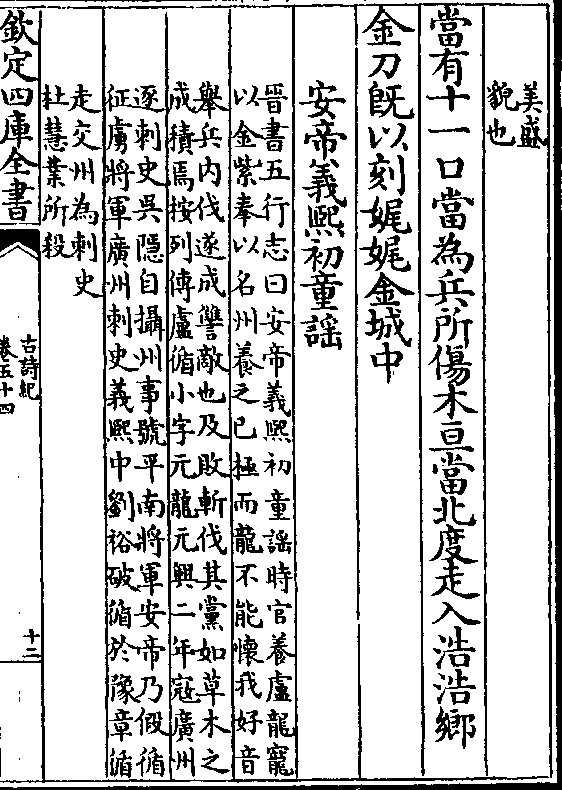 美盛
貌也
當有十一口當為兵所傷木亘當北度走入浩浩鄉
金刀旣以刻娓娓金城中
安帝義熙初童謡
晉書五行志曰安帝義熙初童謡時官養盧龍寵
以金紫奉以名州養之已極而龍不能懷我好音
舉兵内伐遂成讐敵也及敗斬伐其黨如草木之
成積焉按列傳盧循小字元龍元興二年寇廣州
逐刺史吳隱自攝州事號平南將軍安帝乃假循
征虜將軍廣州刺史義熙中劉裕破循於豫章循
走交州為刺史
杜慧業所殺
欽定四庫全書
古詩紀
卷五十四
十二